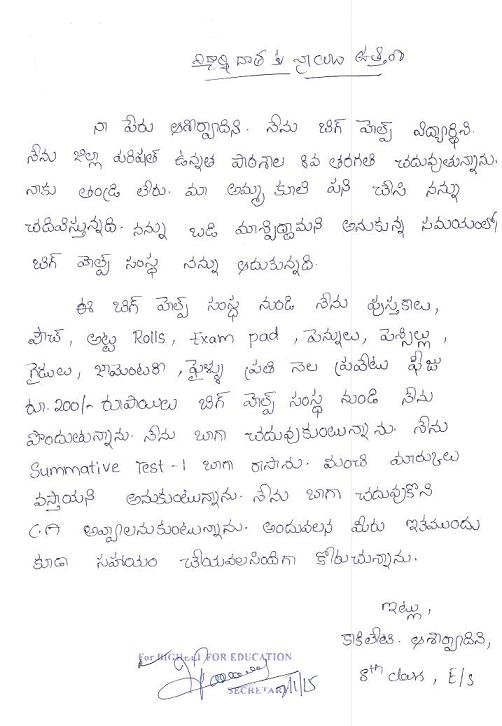 విద్యార్థి దాత కు వ్రాయు ఉత్తరం
నా పేరు ఆశీర్వాదిని. నేను బిగ్ హెల్ప్ విద్యార్థిని.
నేను జిల్లా పరిషత్ ఉన్నత పాఠశాల 8వ తరగతి చదువుతున్నాను.
నాకు తండ్రి లేరు. మా అమ్మ కూలి పని చేసి నన్ను
చదివిస్తున్నది. నన్ను బడి మాన్పిద్దామని అనుకున్న సమయంలో
బిగ్ హెల్ప్ సంస్థ నన్ను ఆదుకున్నది.
ఈ బిగ్ హెల్ప్ సంస్థ నుండి నేను పుస్తకాలు,
పౌచ్, అట్ట Rolls, Exam pad, పెన్నులు, పెన్సిల్లు,
గైడులు, జామెంటరీ, ఫైళ్ళు ప్రతి నెల ప్రవేటు ఫీజు
రూ. 200/- రూపాయిలు బిగ్ హెల్ప్ సంస్థ నుండి నేను
పొందుతున్నాను. నేను బాగా చదువుకుంటున్నాను. నేను
Summative Test-1 బాగా రాసాను. మంచి మార్కులు
వస్తాయని అనుకుంటున్నాను. నేను బాగా చదువుకొని
C.A అవ్వాలనుకుంటున్నాను. అందువలన మీరు ఇకముందు
కూడా సహాయం చేయవలసిందిగా కోరుచున్నాను.
ఇట్లు,
ఆశీర్వాదిని,
8th class, E/S
For BIGHelp FOR EDUCATION
SECRETARY